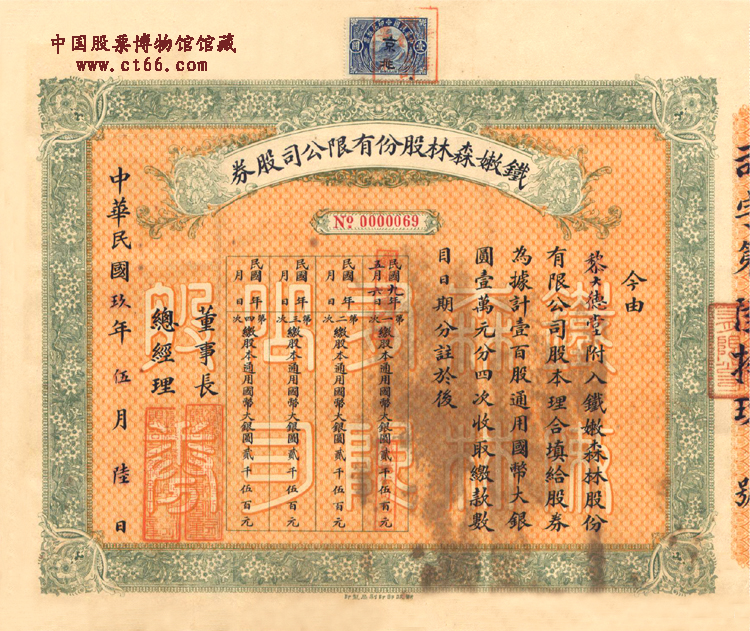 中国股票博物馆馆藏
www.ct66.com
京
鐵嫩森林股份有限公司股券
Nº 0000069
今由
黎大德堂附入鐵嫩森林股份
有限公司股本理合填給股券
為據計壹百股通用國幣大銀
圓壹萬元分四次收取繳款數
目日期分註於後
民國九年第一繳股本通用國幣大銀圓貳千伍百元
五月六日次
民國 年第二繳股本通用國幣大銀圓貳千伍百元
月 日次
民國 年第三繳股本通用國幣大銀圓貳千伍百元
月 日次
民國 年第四繳股本通用國幣大銀圓貳千伍百元
月 日次
董事長
總經理
中華民國玖年伍月陸日